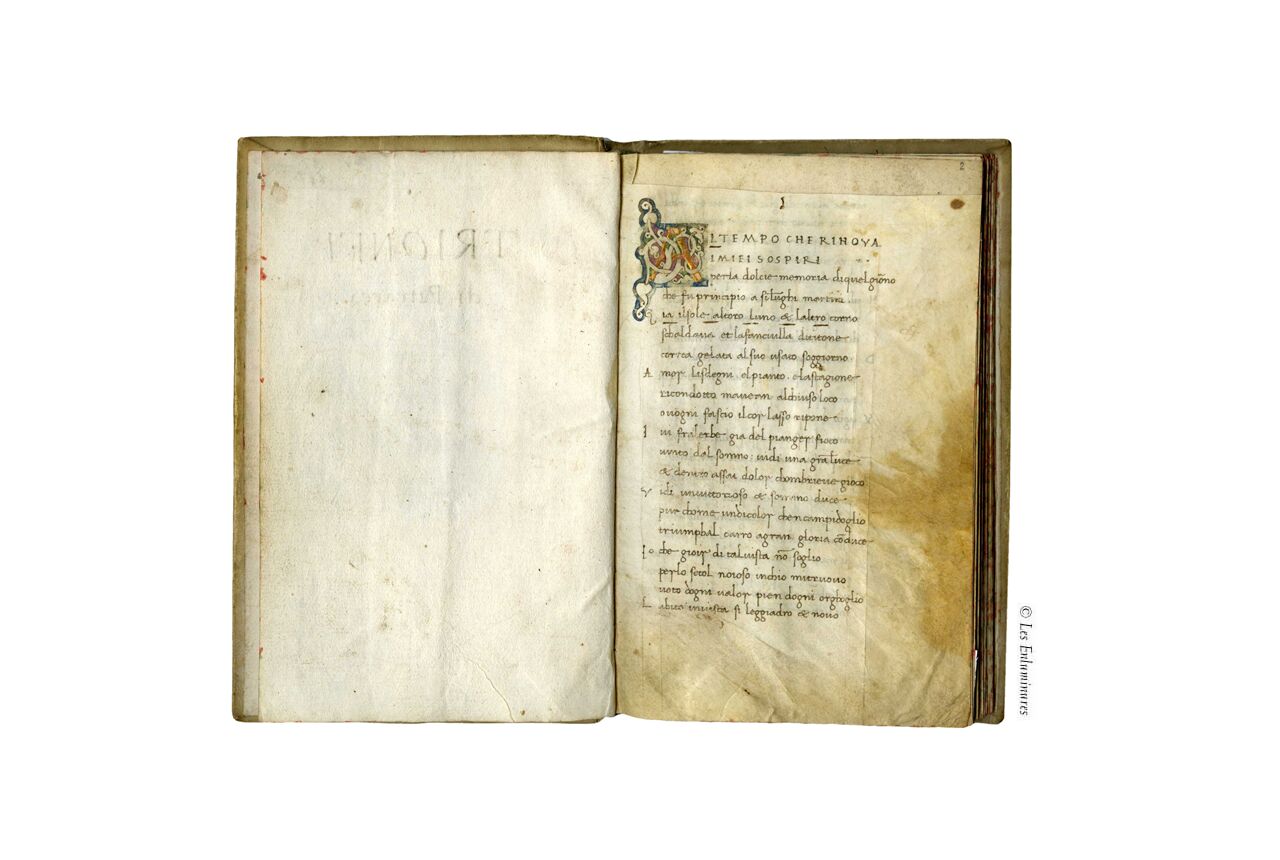 TRIONFI
di Petrarca
2
1
AL TEMPO CHE RINOVA
I MIEI SOSPIRI
per la dolcie memoria di quel giorno
che fu principio a si lūghi martiri
Gia il sole al toro luno & laltro corno
schaldava et la fanciulla di titone
correa gelata al suo usato soggiorno
A mor lisdegni el pianto e la stagione
ricondotto mavean al chiuso loco
ovogni fascio il cor lasso ripone
I vi fra lerbe gia del pianger fioco
vinto dal sonno vidi una grā luce
& dentro assai dolor chombrieve gioco
V idi un vittorioso & sommo duce
pur chome un di color chen campidoglio
triumphal carro a gran gloria cōduce
I o che gioir di tal vista nō soglio
per lo secol noioso inchio mi truovo
voto dogni valor pien dogni orghoglio
L abito in vista si leggiadro & novo
© Les Enluminures